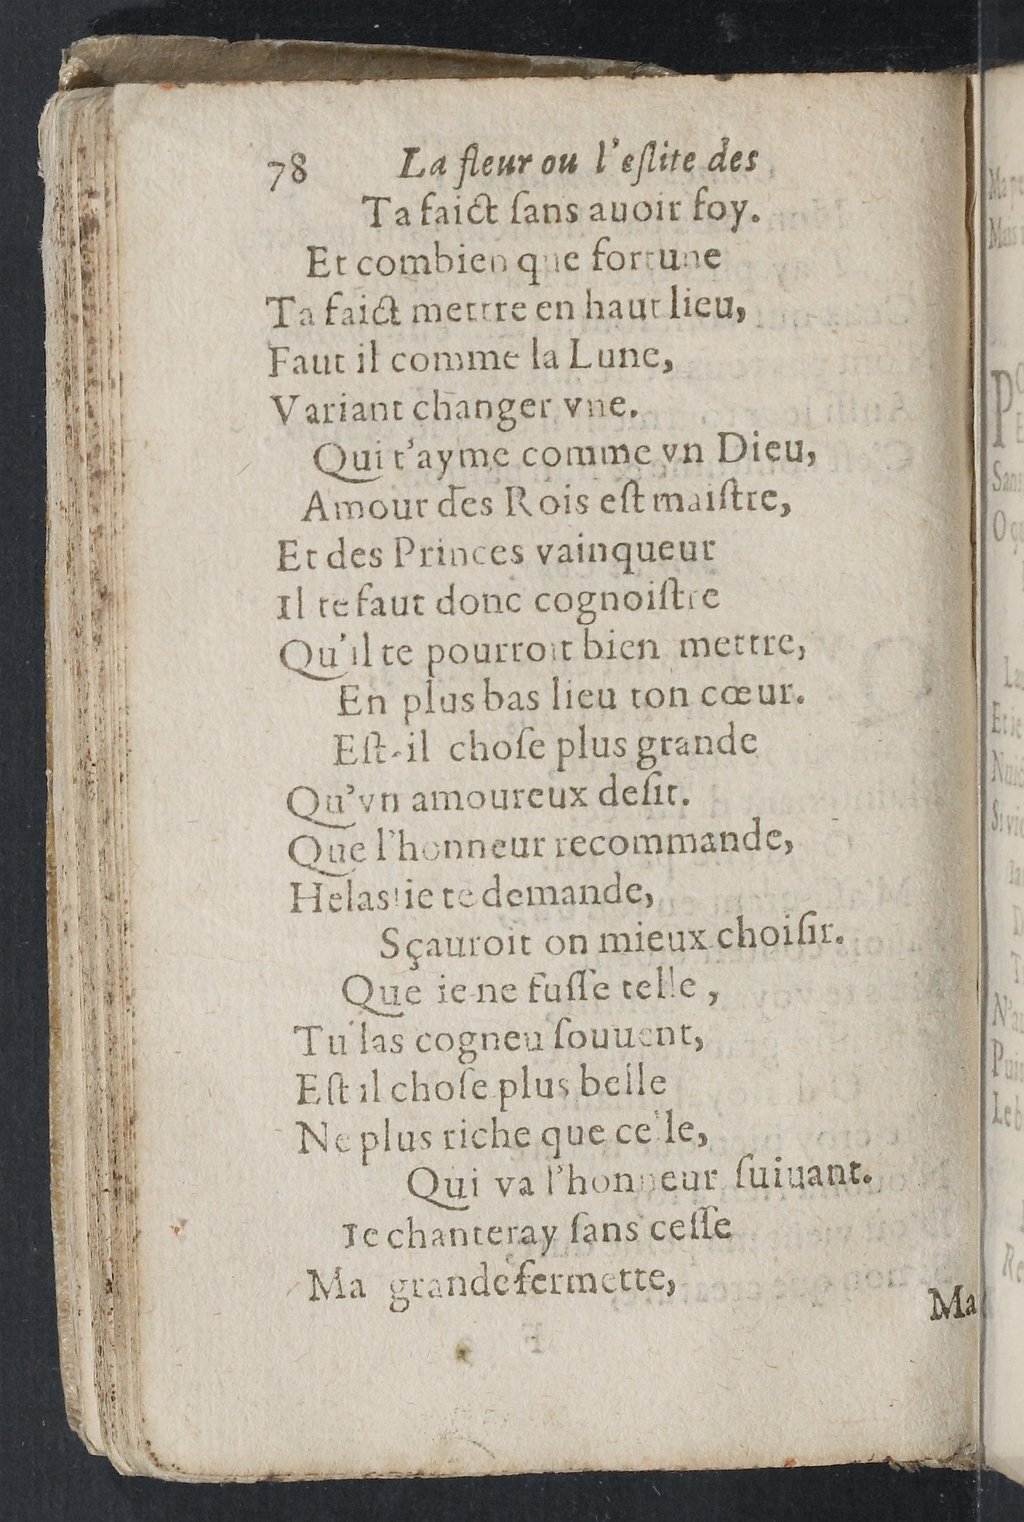 78 La fleur ou l'eſlite des
Ta faict ſans auoir foy.
Et combien que fortune
Ta faict mettre en haut lieu,
Faut il comme la Lune,
Variant changer vne.
Qui t'ayme comme vn Dieu,
Amour des Rois eſt maiſtre,
Et des Princes vainqueur
Il te faut donc cognoiſtre
Qu'il te pourroit bien mettre,
En plus bas lieu ton cœur.
Eſt-il choſe plus grande
Qu'vn amoureux deſir.
Que l'honneur recommande,
Helas! ie te demande,
Sçauroit on mieux choiſir.
Que ie ne fuſſe telle,
Tu las cogneu ſouuent,
Eſt il choſe plus belle
Ne plus riche que celle,
Qui va l'honneur ſuiuant.
Ie chanteray ſans ceſſe
Ma grande fermette,
Ma